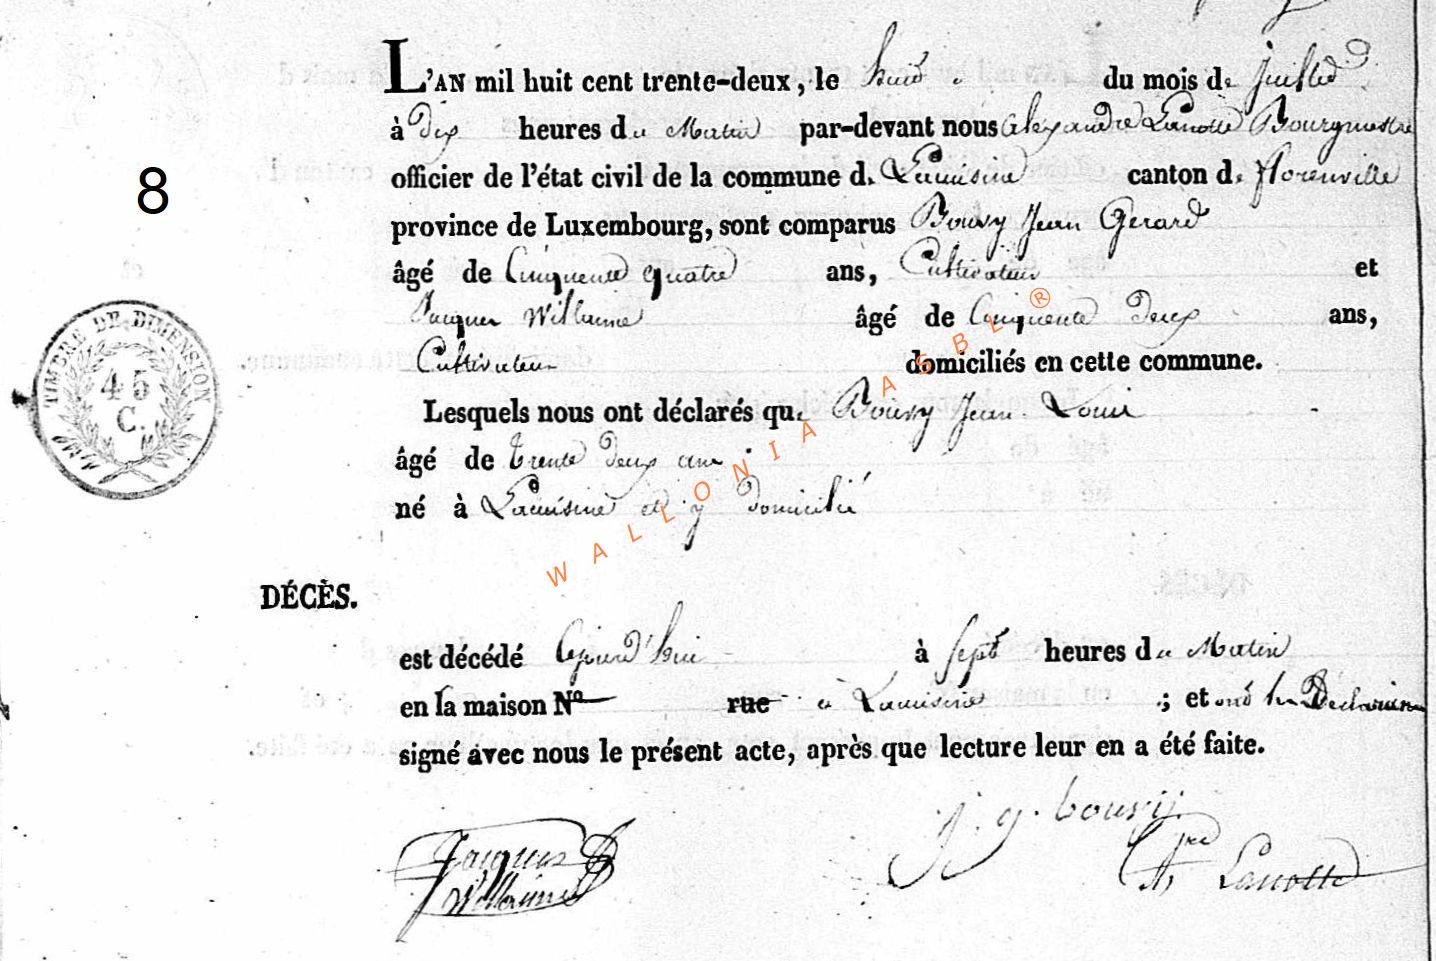 L'AN mil huit cent trente-deux, le huit du mois de Juillet
à Dix heures du Matin par-devant nous Alexandre Lanotte Bourgmestre
officier de l'état civil de la commune d. Lacuisine canton de florenville
province de Luxembourg, sont comparus Boury Jean Gerard
âgé de Cinquente quatre ans, Cultivateur et
Jacques Willaime âgé de Cinquente Deux ans,
Cultivateur domiciliés en cette commune.
Lesquels nous ont déclarés que Boury Jean Louis
âgé de trente Deux ans
né à Lacuisine et y Domicilié
8
TIMBRE DE DIMENSION
45
C.
WALLONIA ASBL ®
DÉCÈS.
est décédé à sept heures du Matin
en la maison Nº rue à Lacuisine ; et ont les Declarans
signé avec nous le présent acte, après que lecture leur en a été faite.
J. g. bourij
Jacques
Willaime
Lanotte